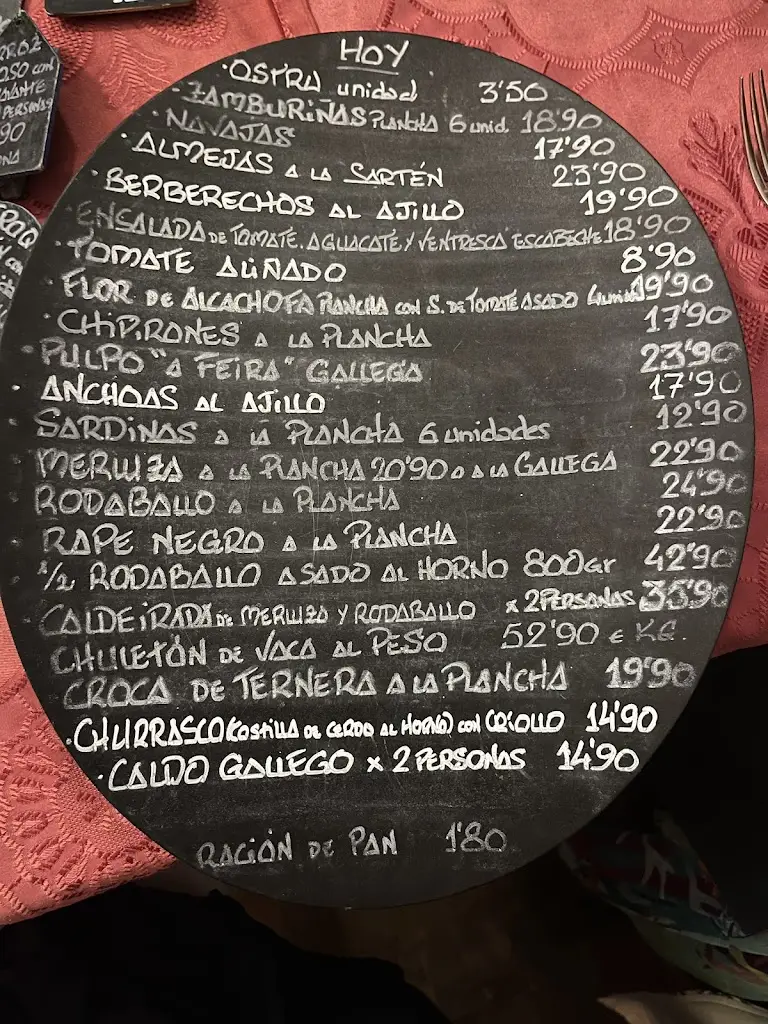 RROZ
OSO con
AVANTE
PERSONAS
90
HOY
·OSTRA unidad 3'50
·ZAMBURIÑAS PLANCHA 6 unid. 18'90
·NAVAJAS 17'90
·ALMEJAS A LA SARTÉN 23'90
·BERBERECHOS AL AJILLO 19'90
·ENSALADA DE TOMATE, AGUACATE Y VENTRESCA ESCABECHE 18'90
·TOMATE ALIÑADO 8'90
·FLOR DE ALCACHOFA PLANCHA CON S. DE TOMATE ASADO 19'90
·CHIPIRONES A LA PLANCHA 17'90
·PULPO "A FEIRA" GALLEGA 23'90
·ANCHOAS AL AJILLO 17'90
·SARDINAS A LA PLANCHA 6 unidades 12'90
·MERLUZA A LA PLANCHA 20'90 O A LA GALLEGA 22'90
·RODABALLO A LA PLANCHA 24'90
·RAPE NEGRO A LA PLANCHA 22'90
·½ RODABALLO ASADO AL HORNO 800gr 42'90
·CALDEIRADA DE MERLUZA Y RODABALLO x 2 PERSONAS 35'90
·CHULETÓN DE VACA AL PESO 52'90 € KG.
·CROCA DE TERNERA A LA PLANCHA 19'90
·CHURRASCO (COSTILLA DE CERDO AL HORNO) CON CRIOLLO 14'90
·CALDO GALLEGO x 2 PERSONAS 14'90
RACIÓN DE PAN 1'80